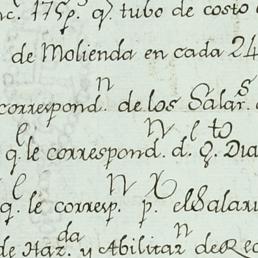 nc. 175p.s q.e tubo de costo
de Molienda en cada 24
correspond.n de los Salar.s
q.e le correspond.N d.l Q.to Dia
q.l le corresp.N p.X el Salari
de Haz.da y Abilitaz.n de Rec